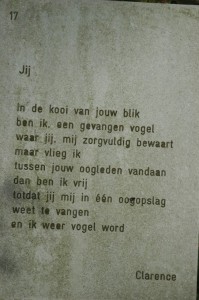 17
Jij
In de kooi van jouw blik
ben ik, een gevangen vogel
waar jij, mij zorgvuldig bewaart
maar vlieg ik
tussen jouw oogleden vandaan
dan ben ik vrij
totdat jij mij in één oogopslag
weet te vangen
en ik weer vogel word
Clarence